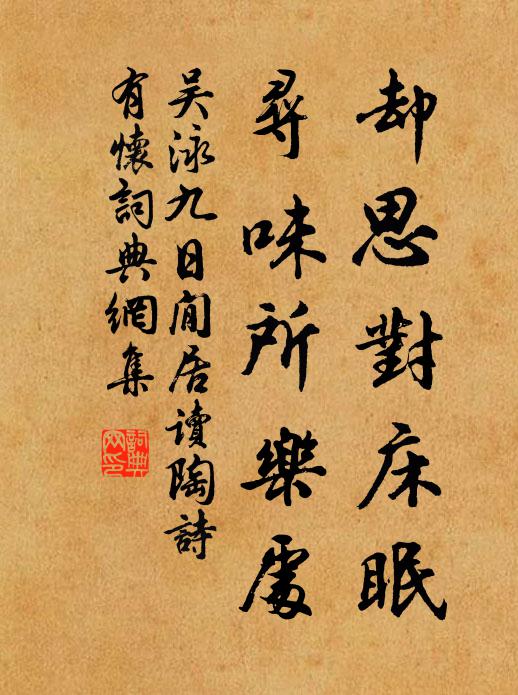 却思對床眠
尋味所樂處
吴泳九日閒居讀陶詩
有懷詞典網集
詞典
网印